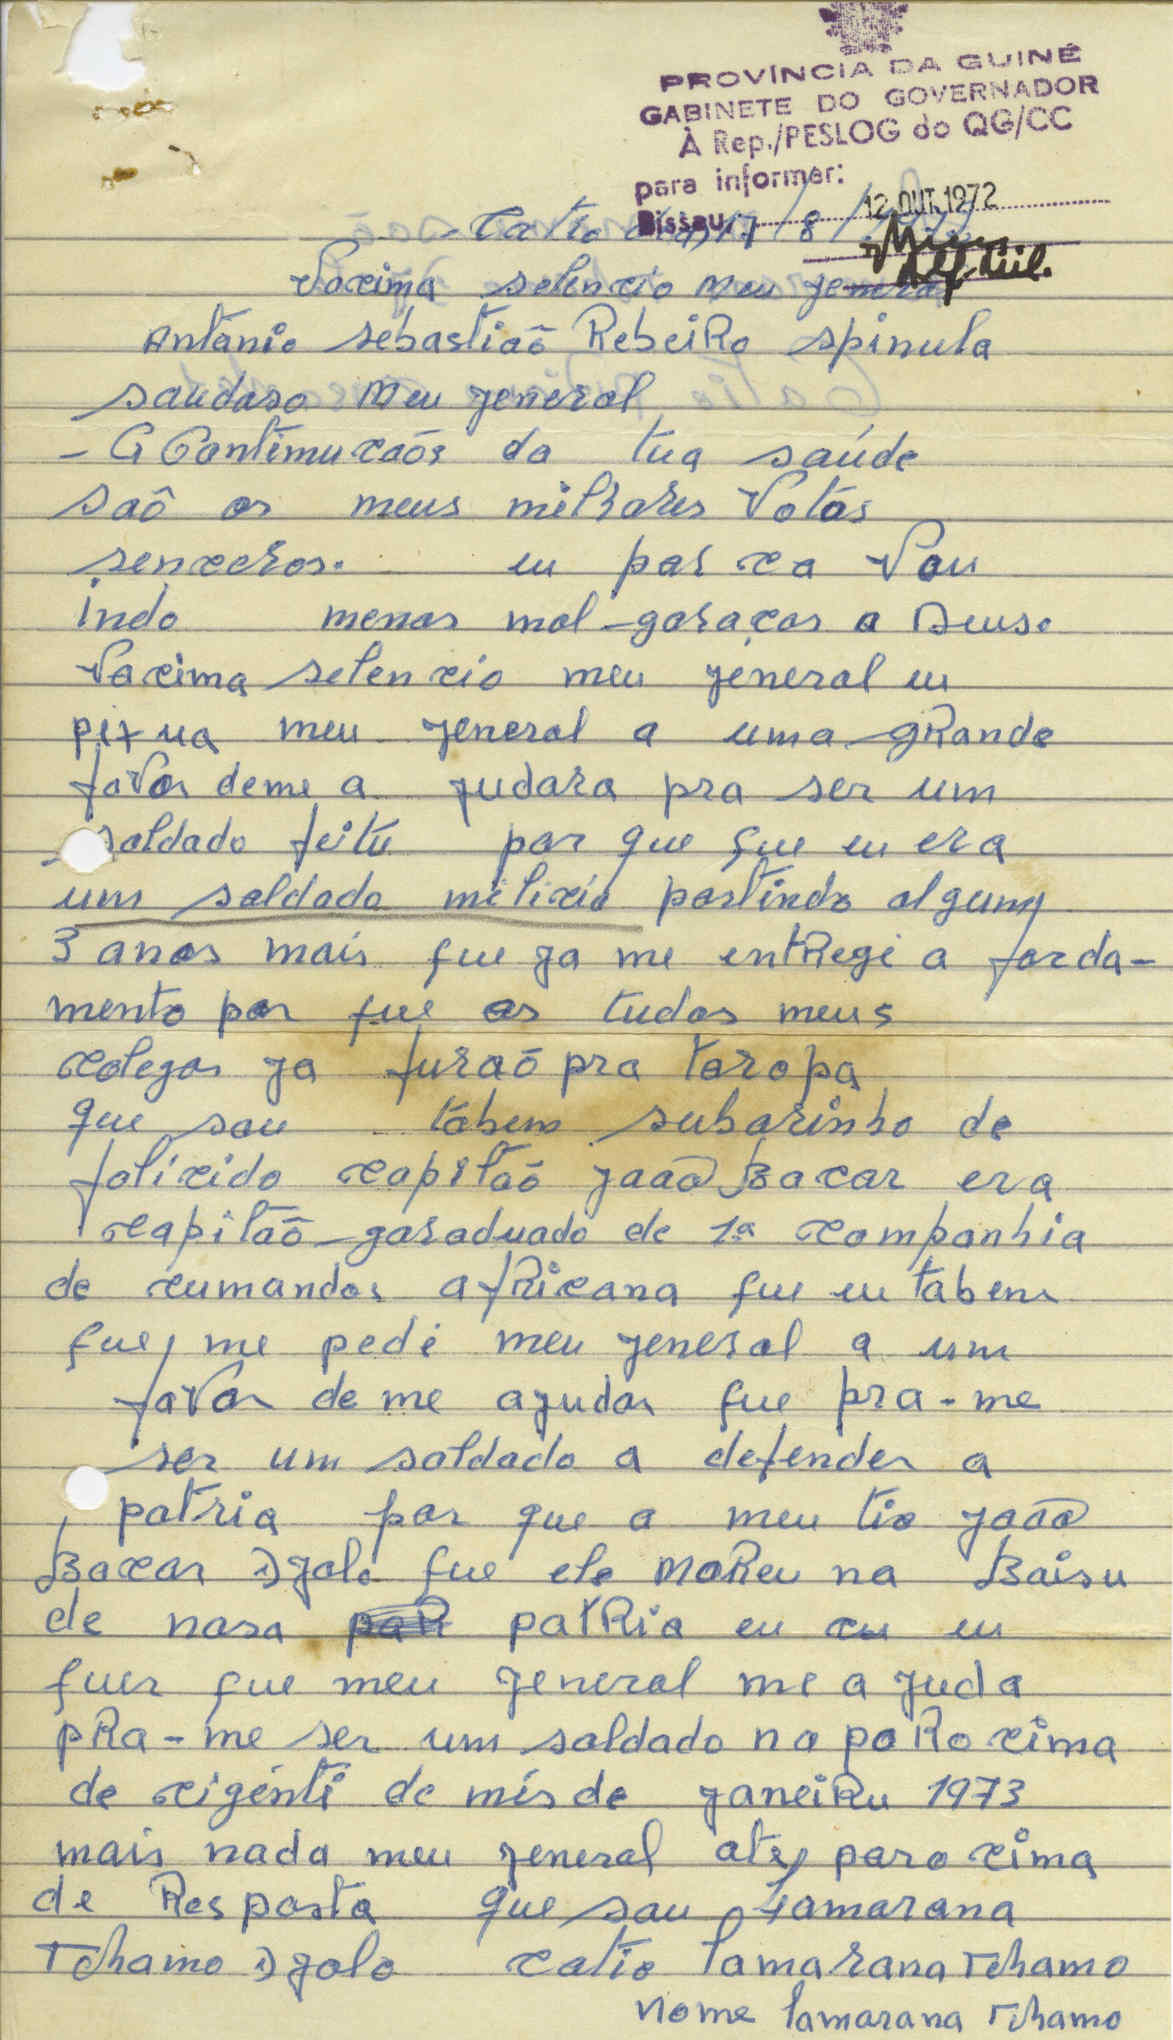 PROVÍNCIA DA GUINÉ
GABINETE DO GOVERNADOR
À Rep./PESLOG do QG/CC
para informar:
Bissau, 12 OUT. 1972
Catio 17/8/
Vocima selencio meu jeneral
António sebastiaõ RebeiRo spinula
saudaso meu jeneral
- G Contimucaõs da tua saúde
saô os meus milhares Votos
senceros. eu par ca Vou
indo menos mal garaças a Deus.
Vacima selencio meu jeneral eu
meu jeneral a uma gRande
favor deme a judara pra ser um
soldado feitu por que que eu era
um soldado melicia partindo algum
3 anos mais que ja me entRegé a farda-
mento por que os tudos meus
colegas ja furaõ pra taropa
que sou tabem subarinho de
folicido capitaõ joaõ Bacar era
capitaõ garaduado de 1ª companhia
de cumandos afRicana que eu tabem
que me pedé meu jeneral a um
favor de me ajudar que pra-me
ser um soldado a defender a
patria por que a meu tio joaõ
Bacar Djalo que ele MoReu na Baisu
de nosa patRia eu eu
quer que meu jeneral me ajuda
pRa-me ser um soldado na paRocima
de cigénti de més de janeiRu 1973
mais nada meu jeneral ate parocima
de Resposta que sou Lamarana
Tchamo Djalo catio Lamarana Tchamo
Nome Lamarana Tchamo